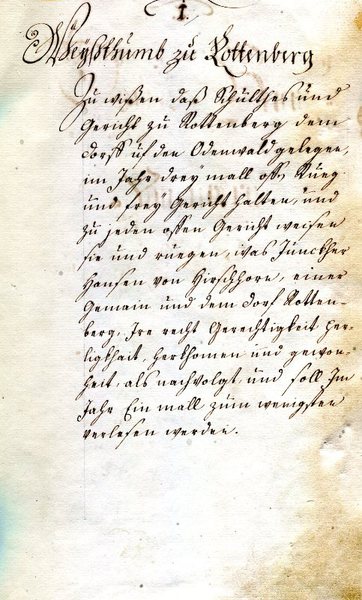 1.
Weÿßthumb zu Rottenberg
Zu wißen daß Schultheß und
Gericht zu Rottenberg dem
dorff uf den Odenwald gelegen,
im Jahr dreÿ mall offen Rueg
und freÿ Gericht halten, und
zu jeden offen Gericht weisen
sie und ruegen, was Junckher
Hansen von Hirschhorn, einer
Gemein und dem dorf Rotten-
berg, Ire recht Gerechtigkeit her-
ligkhait, herkhomen und gewon-
heit, als nachvolgt, und soll Im
Jahr Ein mall zum wenigsten
verlesen werden.